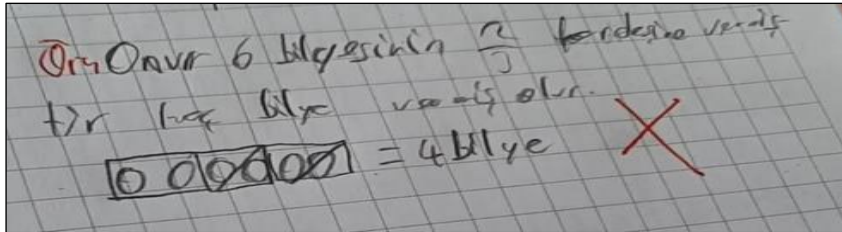 Örn Onur 6 bilyesinin 2/3 kardeşine vermiş
tir kaç bilye vermiş olur.
= 4 bilye